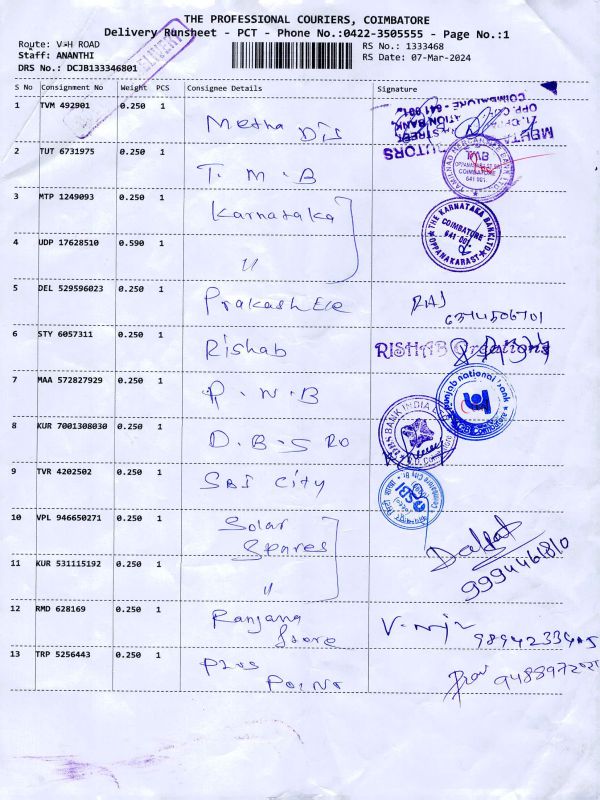 THE PROFESSIONAL COURIERS, COIMBATORE
Delivery Runsheet - PCT - Phone No.:0422-3505555 - Page No.:1
Route: V-H ROAD
Staff: ANANTHI
DRS No.: DCJB133346801
RS No.: 1333468
RS Date: 07-Mar-2024
S No Consignment No Weight PCS Consignee Details Signature
1 TVM 492901 0.250 1 Metha Dis
2 TUT 6731975 0.250 1 T.M.B
3 MTP 1249093 0.250 1 Karnataka
4 UDP 17628510 0.590 1 "
THE KARNATAKA BANK LTD
COIMBATORE
641 001.
OPPANAKARAST
5 DEL 529596023 0.250 1 Prakash Ele RAJ
6374506701
6 STY 6057311 0.250 1 Rishab RISHAB Creations
7 MAA 572827929 0.250 1 P.N.B
punjab national bank
8 KUR 7001308030 0.250 1 D.B.S RO
DBS BANK INDIA
9 TVR 4202502 0.250 1 SBI City
SBI
10 VPL 946650271 0.250 1 Solar
Spares
9994461810
11 KUR 531115192 0.250 1 "
12 RMD 628169 0.250 1 Ranjana
Store
9894233905
13 TRP 5256443 0.250 1 Plus
Point